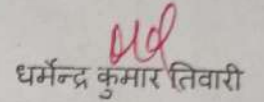 धर्मेन्द्र कुमार तिवारी